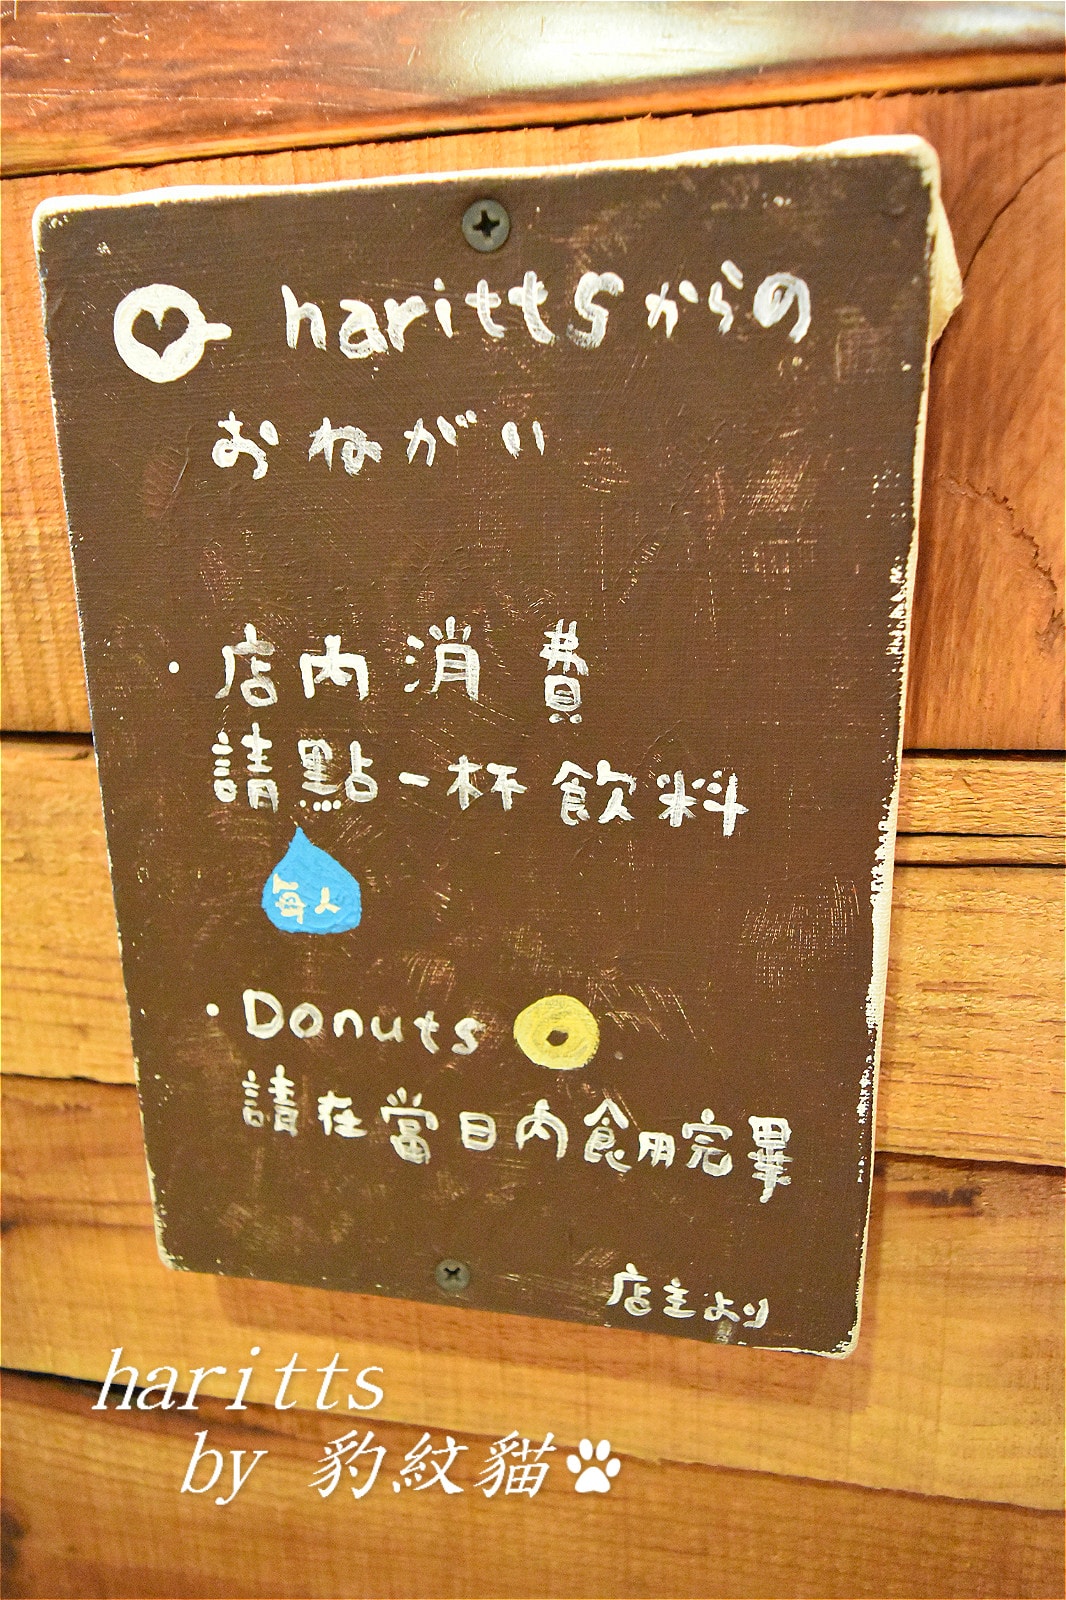 harittsからの
おねがい
・店内消費
請點一杯飲料
每人
・Donuts
請在當日内食用完畢
店主より
haritts
by 豹紋貓